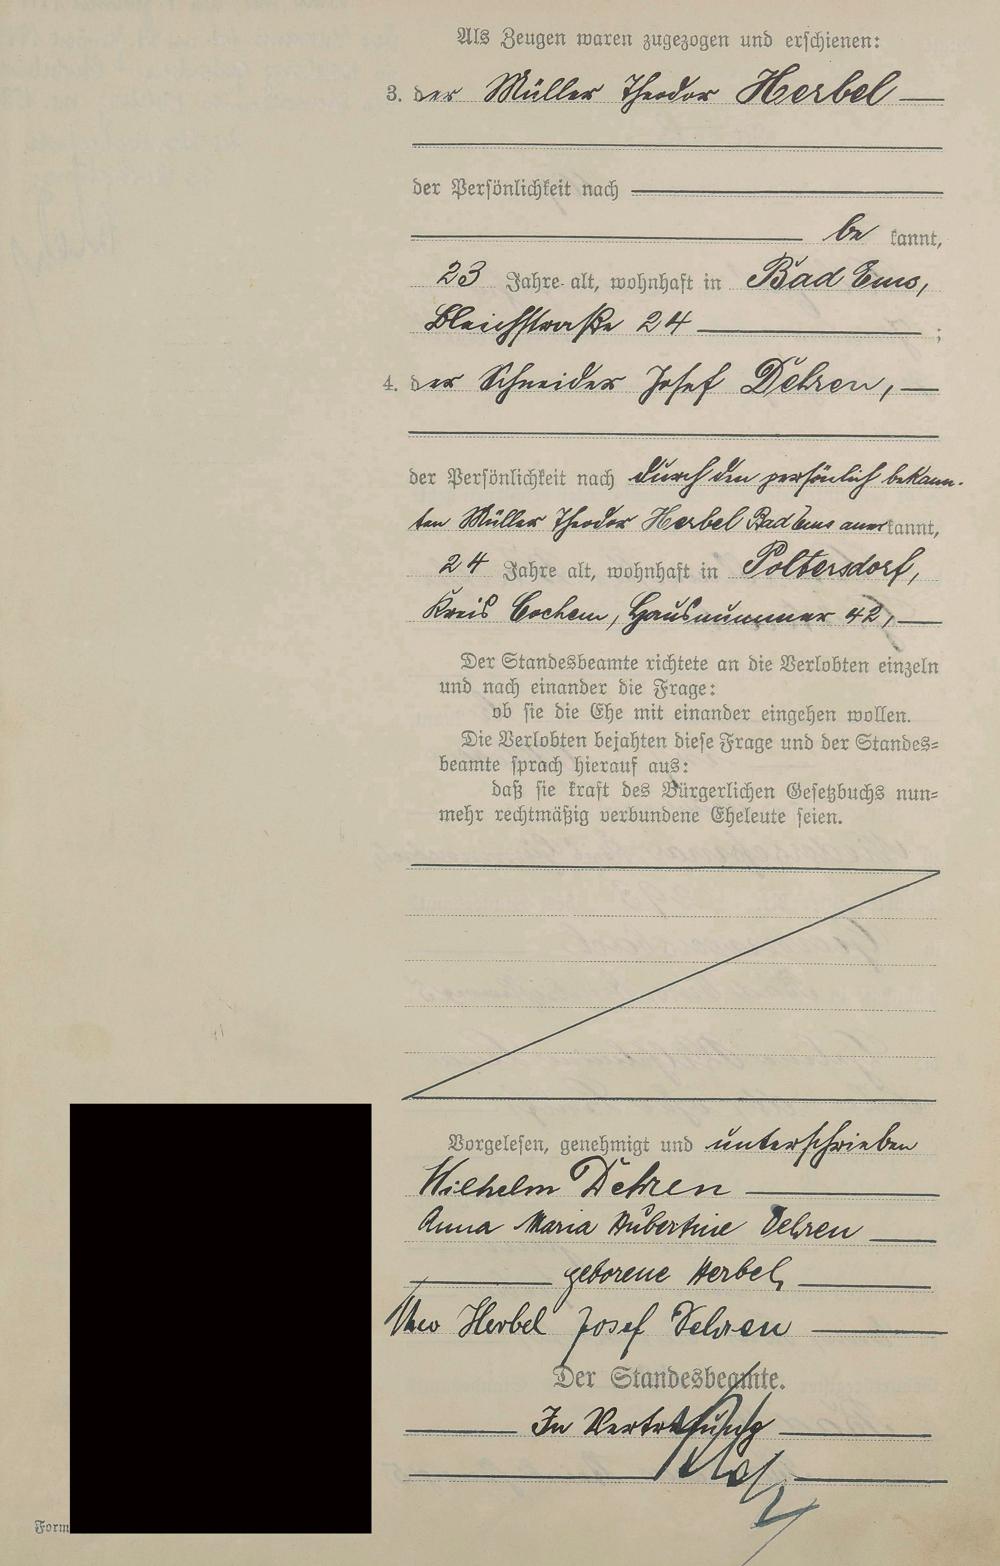 Als Zeugen waren zugezogen und erschienen:
3. der Müller Theodor Herbel
der Persönlichkeit nach
be kannt,
23 Jahre alt, wohnhaft in Bad Ems,
Bleichstraße 24 ;
4. der Schneider Josef Dehren,
der Persönlichkeit nach durch den persönlich bekann-
ten Müller Theodor Herbel Bad Ems anerkannt,
24 Jahre alt, wohnhaft in Poltersdorf,
Kreis Cochem, Hausnummer 42,
Der Standesbeamte richtete an die Verlobten einzeln
und nach einander die Frage:
ob sie die Ehe mit einander eingehen wollen.
Die Verlobten bejahten diese Frage und der Standes-
beamte sprach hierauf aus:
daß sie kraft des Bürgerlichen Gesetzbuchs nun-
mehr rechtmäßig verbundene Eheleute seien.
Vorgelesen, genehmigt und unterschrieben
Wilhelm Dehren
Anna Maria Hubertine Dehren
geborene Herbel,
Theo Herbel Josef Dehren
Der Standesbeamte.
In Vertretung
Form